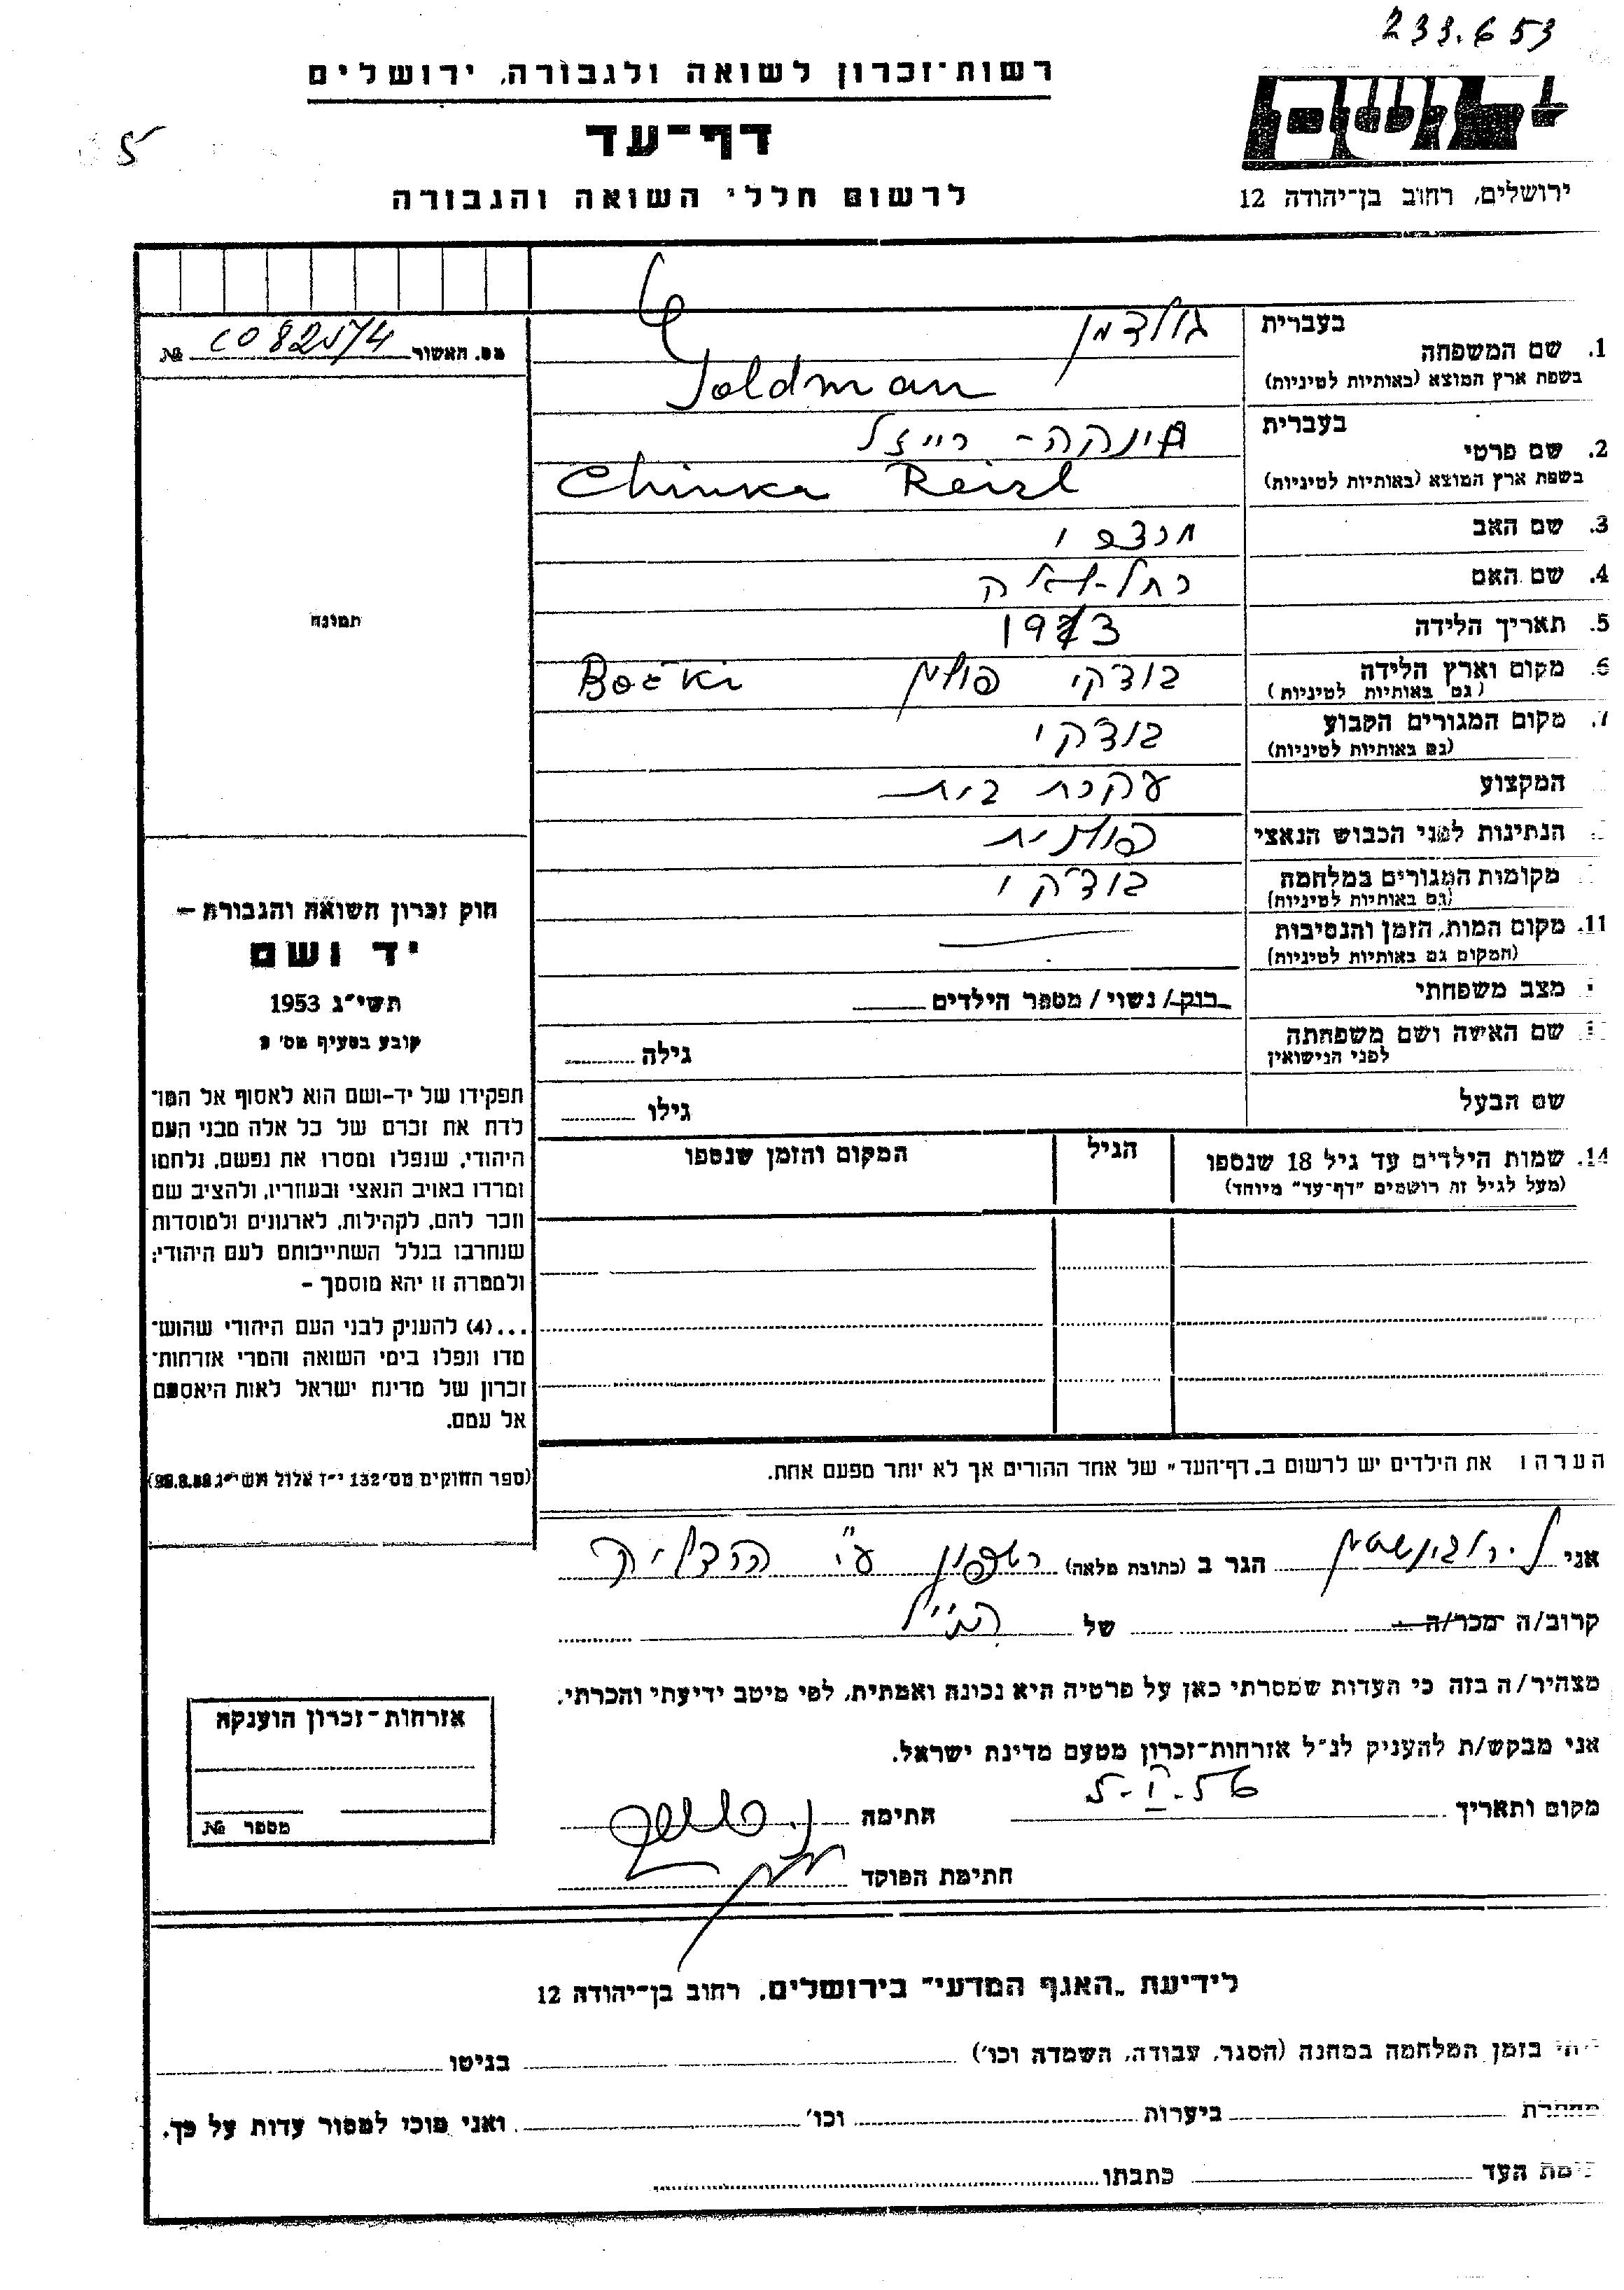 233.653
רשות־זכרון לשואה ולגבורה, ירושלים
דף־עד
לרשום חללי השואה והגבורה
יד ושם
ירושלים, רחוב בן־יהודה 12
5
מס. האשור № 108254
תמונה
1. שם המשפחה
בעברית גולדמן
בשפת ארץ המוצא (באותיות לטיניות) Goldman
2. שם פרטי
בעברית חינקה - רייזל
בשפת ארץ המוצא (באותיות לטיניות) Chinka Reizl
3. שם האב
4. שם האם רחל-לאה
5. תאריך הלידה 1913
6. מקום וארץ הלידה בודקי פולין Bočki
(גם באותיות לטיניות)
7. מקום המגורים הקבוע בודקי
(גם באותיות לטיניות)
המקצוע עקרת בית
הנתינות לפני הכבוש הנאצי פולנית
מקומות המגורים במלחמה בודקי
(גם באותיות לטיניות)
11. מקום המות, הזמן והנסיבות
(המקום גם באותיות לטיניות)
מצב משפחתי רווק / נשוי / מספר הילדים
שם האשה ושם משפחתה גילה
לפני הנישואין
שם הבעל גילו
14. שמות הילדים עד גיל 18 שנספו הגיל המקום והזמן שנספו
(מעל לגיל זה רושמים "דף־עד" מיוחד)
הערה ו את הילדים יש לרשום ב„דף־העד" של אחד ההורים אך לא יותר מפעם אחת.
חוק זכרון השואה והגבורה –
יד ושם
תשי"ג 1953
קובע בסעיף מס' 2
תפקידו של יד-ושם הוא לאסוף אל המו־
לדת את זכרם של כל אלה מבני העם
היהודי, שנפלו ומסרו את נפשם, נלחמו
ומרדו באויב הנאצי ובעוזריו, ולהציב שם
וזכר להם, לקהילות, לארגונים ולמוסדות
שנחרבו בגלל השתייכותם לעם היהודי;
ולמטרה זו יהא מוסמך –
...(4) להעניק לבני העם היהודי שהוש־
מדו ונפלו בימי השואה והמרי אזרחות־
זכרון של מדינת ישראל לאות היאספם
אל עמם.
(ספר החוקים מס' 132 י"ז אלול תשי"ג 28.8.53)
אני ל. רובינשטיין הגר ב (כתובת מלאה)
קרוב/ה מכר/ה של הנ"ל
מצהיר/ה בזה כי העדות שמסרתי כאן על פרטיה היא נכונה ואמתית, לפי מיטב ידיעתי והכרתי.
אני מבקש/ת להעניק לנ"ל אזרחות־זכרון מטעם מדינת ישראל.
מקום ותאריך 5-I-56 חתימה
חתימת הפוקד
אזרחות־זכרון הוענקה
מספר №
לידיעת „האגף המדעי" בירושלים, רחוב בן־יהודה 12
בזמן המלחמה במחנה (הסגר, עבודה, השמדה וכו') בגיטו
במחתרת ביערות וכו' ואני מוכן למסור עדות על כך.
העד כתבתו